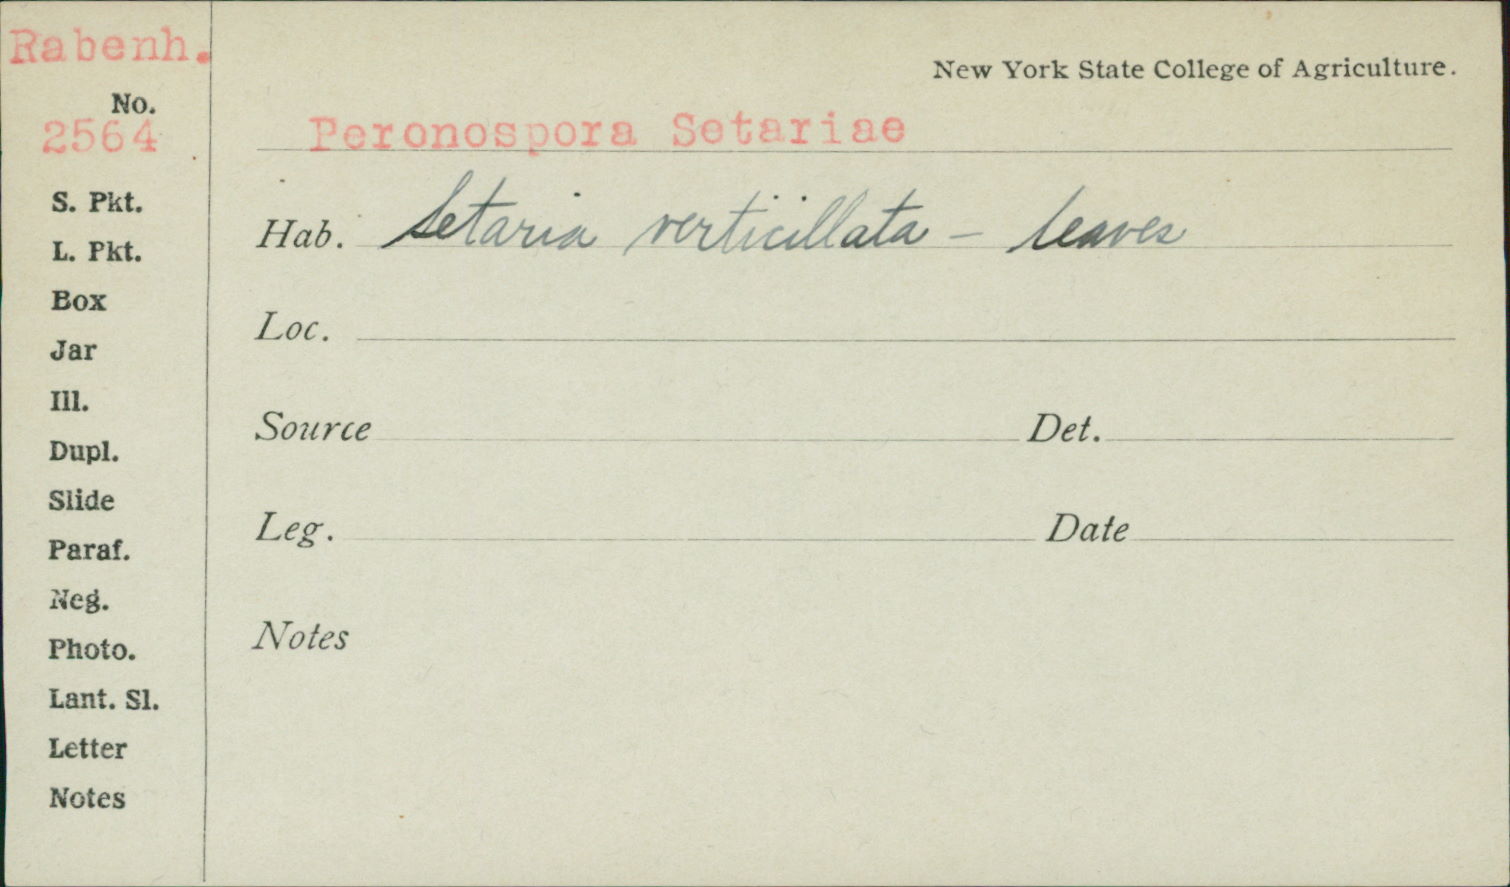 Rabenh.
New York State College of Agriculture.
No.
2564
Peronospora Setariae
S. Pkt.
Hab. Setaria verticillata - leaves
L. Pkt.
Box
Loc.
Jar
Ill.
Source Det.
Dupl.
Slide
Leg. Date
Paraf.
Neg.
Notes
Photo.
Lant. Sl.
Letter
Notes